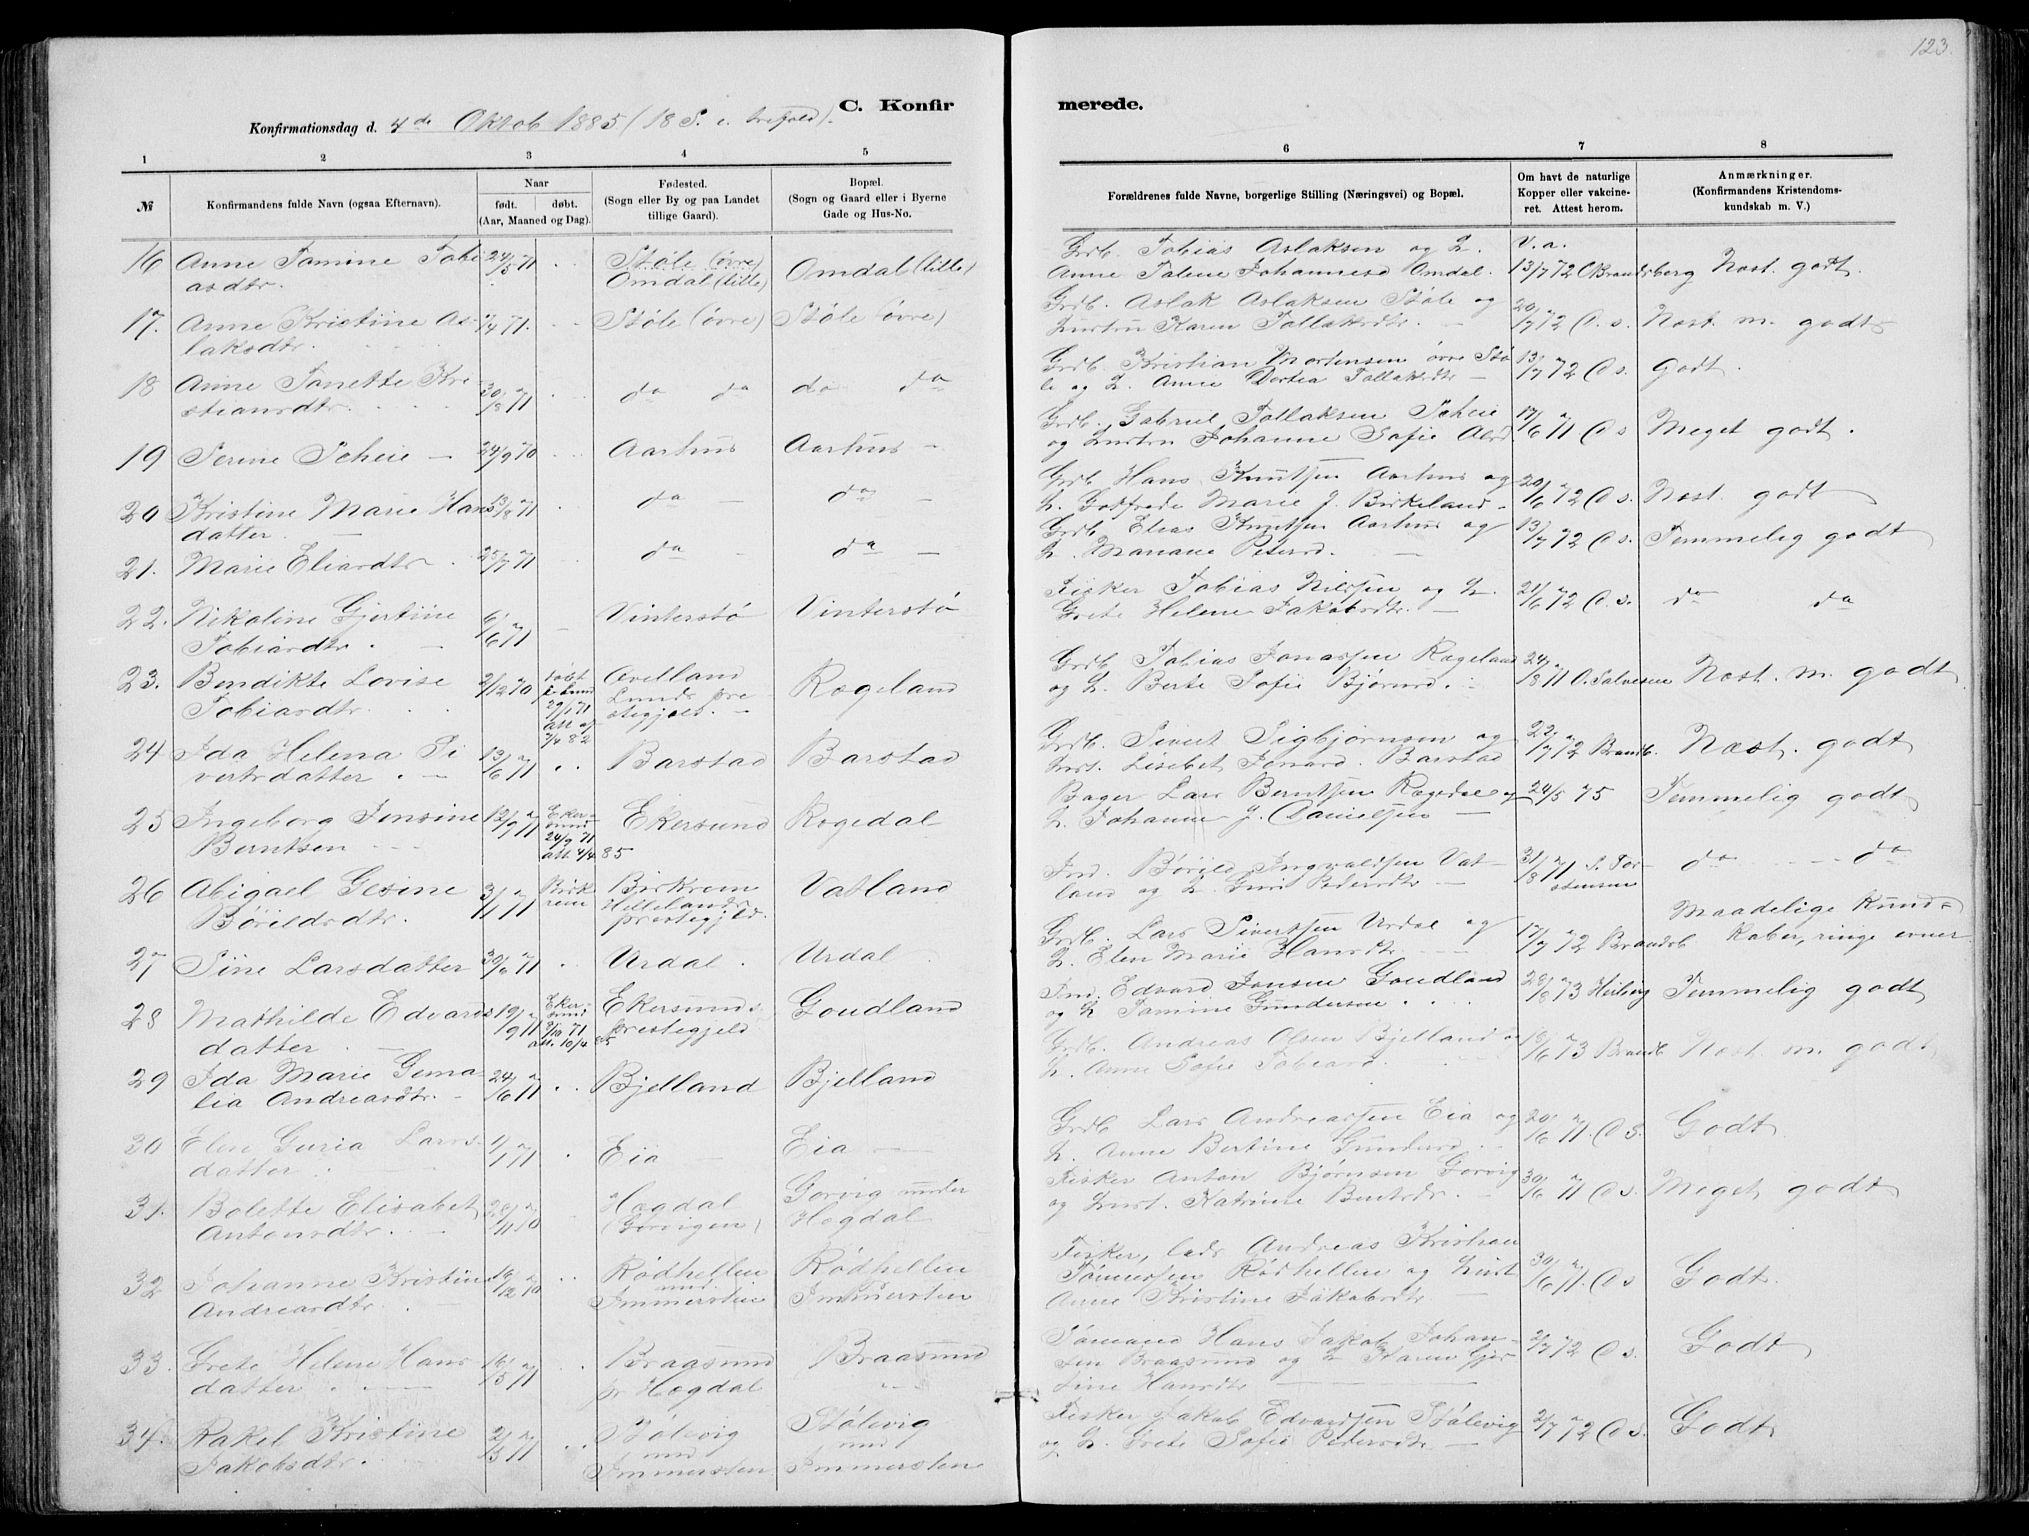 123.
C. Konfirmerede.
Konfirmationsdag d. 4de Oktob 1885 (18 S. e. trefold).
1 2 3 4 5 6 7 8
№
Konfirmandens fulde Navn (ogsaa Efternavn).
Naar
født. døbt.
(Aar, Maaned og Dag).
Fødested.
(Sogn eller By og paa Landet
tillige Gaard).
Bopæl.
(Sogn og Gaard eller i Byerne
Gade og Hus-No.
Forældrenes fulde Navne, borgerlige Stilling (Næringsvei) og Bopæl.
Om havt de naturlige
Kopper eller vakcine-
ret. Attest herom.
Anmærkninger.
(Konfirmandens Kristendoms-
kundskab m. V.)
16 Anne Tamine Tobi
asdtr.
24/5 71
Støle (øvre)
Omdal (lille)
Omdal (lille)
Grdb. Tobias Aslaksen og H.
Anne Talene Johannesd Omdal.
V. a.
13/7 72 Brandsberg
Næst. godt.
17. Anne Kristine As-
laksdtr.
7/4 71.
Støle (øvre)
Støle (øvre)
Grdb. Aslak Aslaksen Støle og
Hustru Karen Tollaksdtr.
20/7 72 O. s.
Næst. m. godt
18 Anne Tanette Kri-
stiansdtr.
30/8 71
do do
do do
Grdb. Kristian Mortensen øvre Stø
le og H. Anne Dortea Tollaksdtr
13/7 72 O s.
godt.
19 Serine Scheie
24/9 70
Aarhus
Aarhus
Grdb. Gabriel Tollaksen Scheie
og Hustru Johanne Sofie
17/6 71 O s
Meget godt.
20 Kristine Marie Hans
datter.
13/8 71
do
do
Grdb. Hans Knutsen Aarhus og
H. Godfrede Marie J. Birkeland.
20/6 72 O s.
Næst. godt
21. Marie Eliasdtr
25/7 71
do
do
Grdb. Elias Knutsen Aarhus og
H. Mariane Petersd.
13/7 72 O s.
Temmelig godt
22. Nikoline Gjertine
Tobiasdtr.
6/6 71
Vinterstø
Vinterstø
Fisker Tobias Nilssen og H.
Grete Helene Jakobsdtr.
21/6 72 O. s.
do do
23. Bendikte Lovise
Tobiasdtr.
2/12 70
døbt
i Lund
29/1 71
att. af
7/4 82
Avelland
Lunds pre
stegjeld.
Rægeland
Grdb Tobias Jonassen Rægeland
og H. Berte Sofie Bjørnsd.
24/8 71 O. Salvesen
Næst. m. godt
24 Ida Helena Si
vertsdatter
13/6 71
Barstad
Barstad
Grdb. Sivert Sigbjørnsen og
Hust. Lisebet Jonasd. Barstad
22/7 72 Brandb.
Næst. godt
25 Ingeborg Jensine
Berntsen
12/9 71
Eker-
sund
24/9 71
att. 4/4 85
Ekersund
Rægedal
Bager Lars Berntsen Rægedal og
H. Johanne J. Danielsen
24/5 75
Temmelig godt
26 Abigael Gesine
Børildsdtr.
3/11 71
Birk
rem
Birkrem
Hellelands
prestegjeld.
Vatland
Ind. Børild Ingvaldsen Vat-
land og H. Guri Pedersdtr
31/8 71 S. Tor-
stensen
do do
27 Sine Larsdatter
30/6 71
Urdal.
Urdal.
Grdb. Lars Sivertsen Urdal og
H. Elen Marie Hansdtr
17/7 72 Brandsb
Maadelige Kund-
skaber, ringe evner
28 Mathilde Edvards
datter.
19/9 71
Eker-
sund
8/10 71
att. 10/4 85
Ekersunds
prestegjeld
Goudland
Ind. Edvard Jonsen Goudland
og H Tamine Gundersen
28/8 73 Heiberg
Temmelig godt
29 Ida Marie Gema-
lia Andreasdtr.
24/6 71
Bjelland
Bjelland
Grdb. Andreas Olsen Bjelland og
H. Anne Sofie Tobiasd.
18/6 73 Brandb
Næst. m. godt
30 Elen Guria Lars-
datter
1/1 71
Eia
Eia
Grdb Lars Andreassen Eia og
H. Anne Bertine Gundersd
20/6 71. O S.
Godt
31. Bolette Elisabet
Antonsdtr.
28/11 70
Hogdal
(Gorvigen)
Gorvig under
Hogdal
Fisker Anton Bjørnsen Gorvig
og Hust. Katrine Berntsdtr.
30/6 71 O s.
Meget godt
32 Johanne Kristine
Andreasdtr.
16/12 70
Rødhellen
und
Immersten
Rødhellen
Immersten
Fisker, lods Andreas Kristian
Tønnessen Rødhellen og Hust
Anne Kristine Jakobsdtr
30/6 71. O s
Godt.
33. Grete Helene Hans
datter
16/5 71
Braasund
pr Hogdal
Braasund
Sømand Hans Jakob Johan-
sen Braasund og H Karen Gjer
tine Hansdtr
2/7 72 O s.
Godt
34. Rakel Kristine
Jakobsdtr.
2/5 71
Stølevig
und
Immersten
Stølevig
und
Immersten
Fisker Jakob Edvardsen Stølevig
og H. Grete Sofie Pedersdtr
2/7 72 O S.
Godt